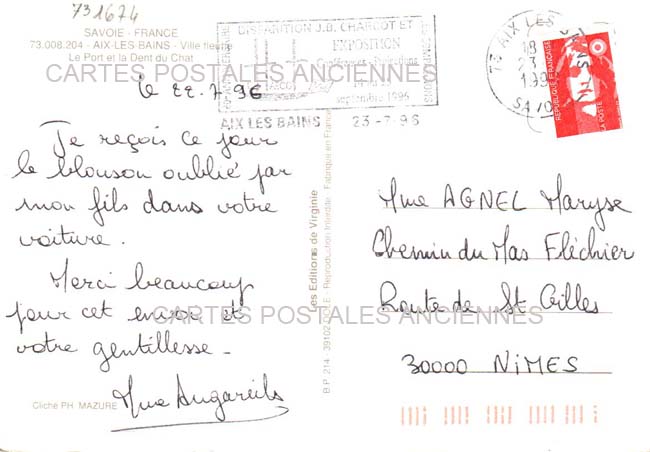 731674
SAVOIE - FRANCE
73.008.204 - AIX-LES-BAINS - Ville fleurie
Le Port et la Dent du Chat
CARTES POSTALES ANCIENNES
le 22.7.96
Je reçois ce jour
le blouson oublié par
mon fils dans votre
voiture.
Merci beaucoup
pour cet envoi et
votre gentillesse -
Mme
Cliché PH. MAZURE
Les Editions de Virginie
Reproduction Interdite Fabriqué en France
B.P. 214 - 39102
DISPARITION J.B. CHARCOT
EXPOSITION
septembre 1996
AIX LES BAINS 23-7-96
73 AIX LES BAINS
18
23
199
SAVOIE
REPUBLIQUE FRANÇAISE
LA POSTE
Mme AGNEL Maryse
Chemin du Mas Fléchier
Route de St Gilles
30000 NîMES
CARTES POSTALES ANCIENNES